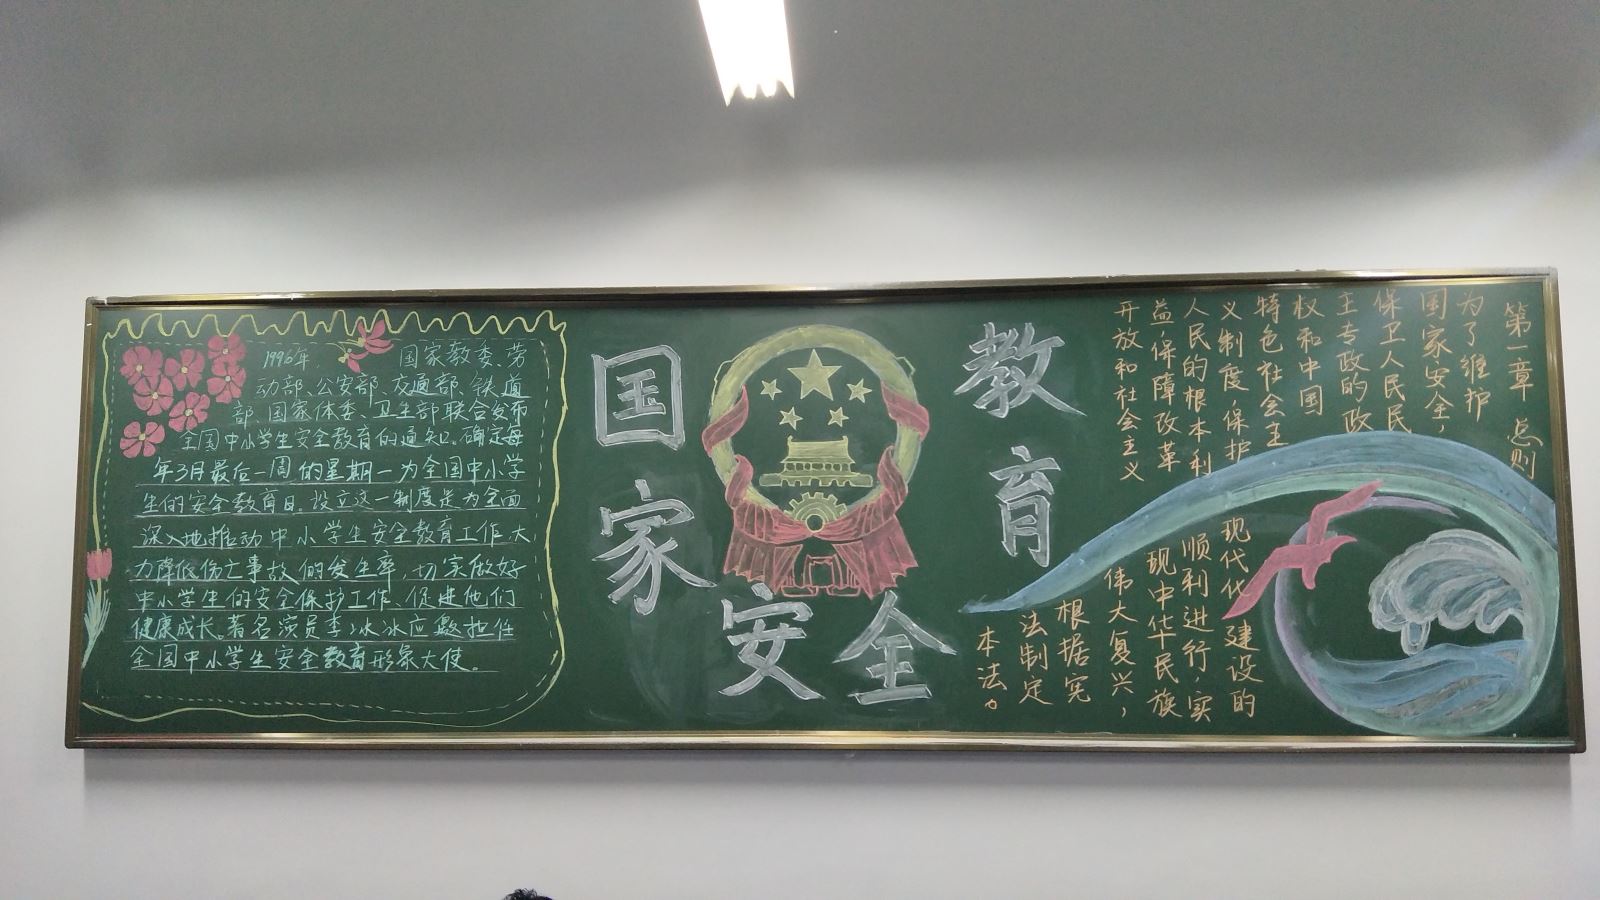 1996年, 国家教委、劳
动部、公安部、交通部、铁道
部、国家体委、卫生部联合发布
全国中小学生安全教育的通知。确定每
年3月最后一周的星期一为全国中小学
生的安全教育日。设立这一制度是为全面
深入地推动中小学生安全教育工作,大
力降低伤亡事故的发生率,切实做好
中小学生的安全保护工作、促进他们
健康成长。著名演员李冰冰应邀担任
全国中小学生安全教育形象大使。
国
家
安
全
教
育
第一章 总则
为了维护
国家安全,
保卫人民民
主专政的政
权和中国
特色社会主
义制度,保护
人民的根本利
益,保障改革
开放和社会主义
现代化建设的
顺利进行,实
现中华民族
伟大复兴,
根据宪
法制定
本法。